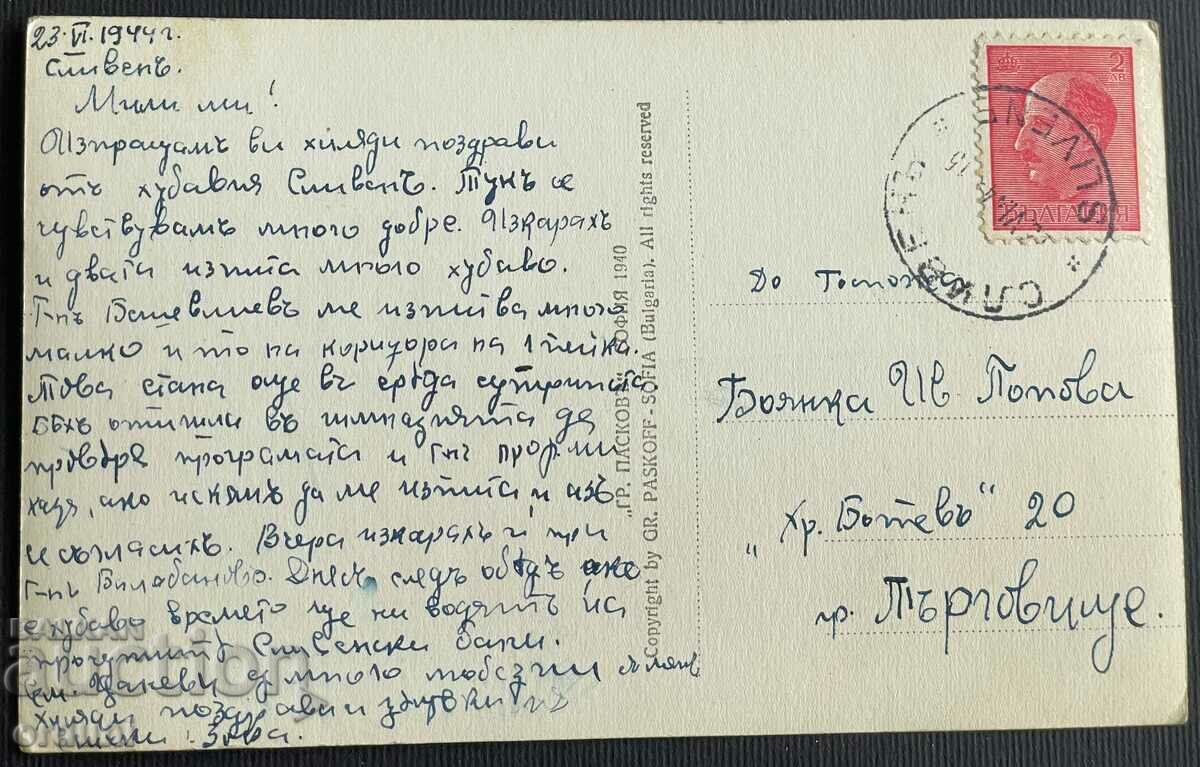 23.VI.1944г.
Сливенъ.
Мили ми!
Изпращамъ ви хиляди поздрави
отъ хубавия Сливенъ. Тукъ се
чувствувамъ много добре. Изкарахъ
и двата изпита много хубаво.
Г-нъ ме изпитва много
малко и то на коридора на 1 пейка.
Това стана още въ сряда сутринта
бѣхъ отишла въ гимназията да
провѣря програмата и г-нъ
ако искамъ да ме изпита и азъ
се съгласихъ. Вчера изкарахъ и при
Г-нъ Днесъ следъ обѣдъ ако
е хубаво времето ще ни водятъ на
прочутитѣ Сливенски бани.
сем. много любезни
Хиляди поздрави и
2
ЛВ
БЪЛГАРИЯ
СЛИВЕНЪ
SLIVEN
До Госпож
Боянка Ив. Попова
"Хр. Ботевъ" 20
гр. Търговище.
"ГР. ПАСКОВЪ" СОФИЯ 1940
Copyright by GR. PASKOFF - SOFIA (Bulgaria). All rights reserved
BALKAN
auction